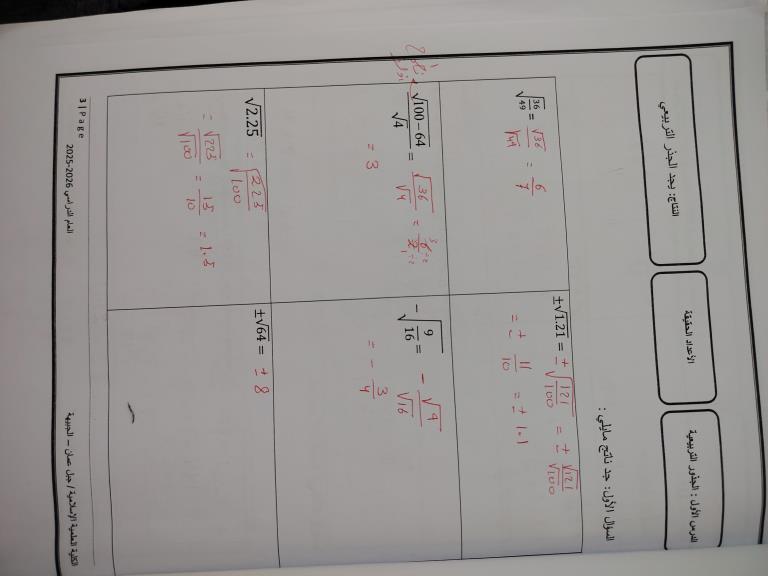 الدرس الأول : الجذور التربيعية
الأعداد الحقيقة
النتاج: يجد الجذر التربيعي
السؤال الأول: جد ناتج مايلي :
±√1.21 = ± √(121/100) = ± √121/√100
= ± 11/10 = ± 1.1
√(36/49) = √36/√49 = 6/7
-√(9/16) = - √9/√16
= - 3/4
√(100-64)/√4 = √36/√4 = 6÷2/2÷2 3/1
= 3
±√64 = ± 8
√2.25 = √(225/100)
= √225/√100 = 15/10 = 1.5
الكلية العلمية الإسلامية / جبل عمان – الجبيهة
العام الدراسي 2025-2026
3 | Page